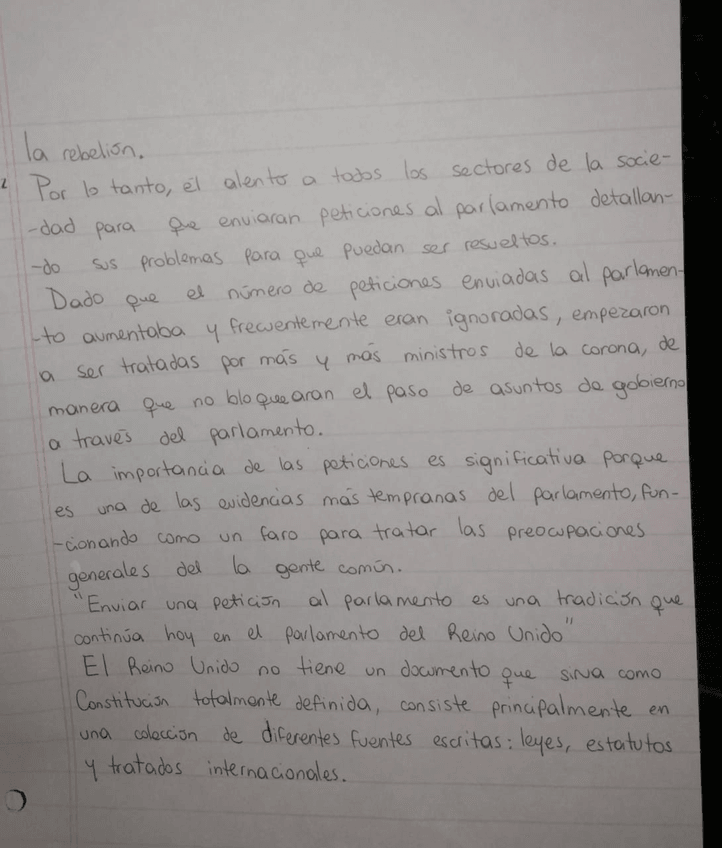 la rebelión.
Por lo tanto, él alento a todos los sectores de la socie-
-dad para que enviaran peticiones al parlamento detallan-
-do sus problemas para que puedan ser resueltos.
Dado que el número de peticiones enviadas al parlamen-
-to aumentaba y frecuentemente eran ignoradas, empezaron
a ser tratadas por más y más ministros de la corona, de
manera que no bloquearan el paso de asuntos de gobierno
a través del parlamento.
La importancia de las peticiones es significativa porque
es una de las evidencias más tempranas del parlamento, fun-
-cionando como un faro para tratar las preocupaciones
generales del la gente común.
"Enviar una petición al parlamento es una tradición que
continúa hoy en el parlamento del Reino Unido"
El Reino Unido no tiene un documento que sirva como
Constitución totalmente definida, consiste principalmente en
una colección de diferentes fuentes escritas: leyes, estatutos
y tratados internacionales.